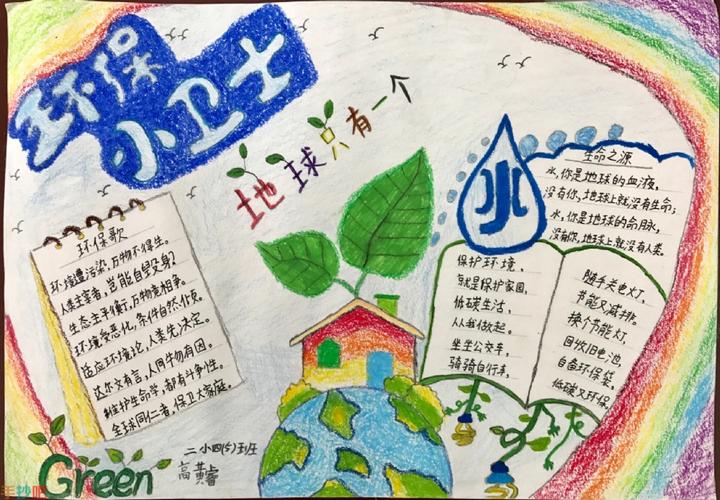 环保
小卫士
地球只有一个
环保歌
环境遭污染，万物不得生。
人类主宰者，岂能自毁身？
生态主平衡，万物竞相争。
环境受恶化，条件自然仆负。
适应环境论，人类先决定。
达尔文有言，人同牛物有因。
维护生命学，都有斗争性。
全球同仁者，保卫大家庭。
水
生命之源
水，你是地球的血液，
没有你，地球上就没有生命；
水，你是地球的命脉，
没有你，地球上就没有人类。
保护环境，
就是保护家园，
低碳生活，
从我做起。
坐坐公交车，
骑骑自行车，
随手关电灯，
节能又减排。
换个节能灯，
回收旧电池，
自备环保袋，
低碳又环保。
Green
二小四(5)班庄
高黄睿